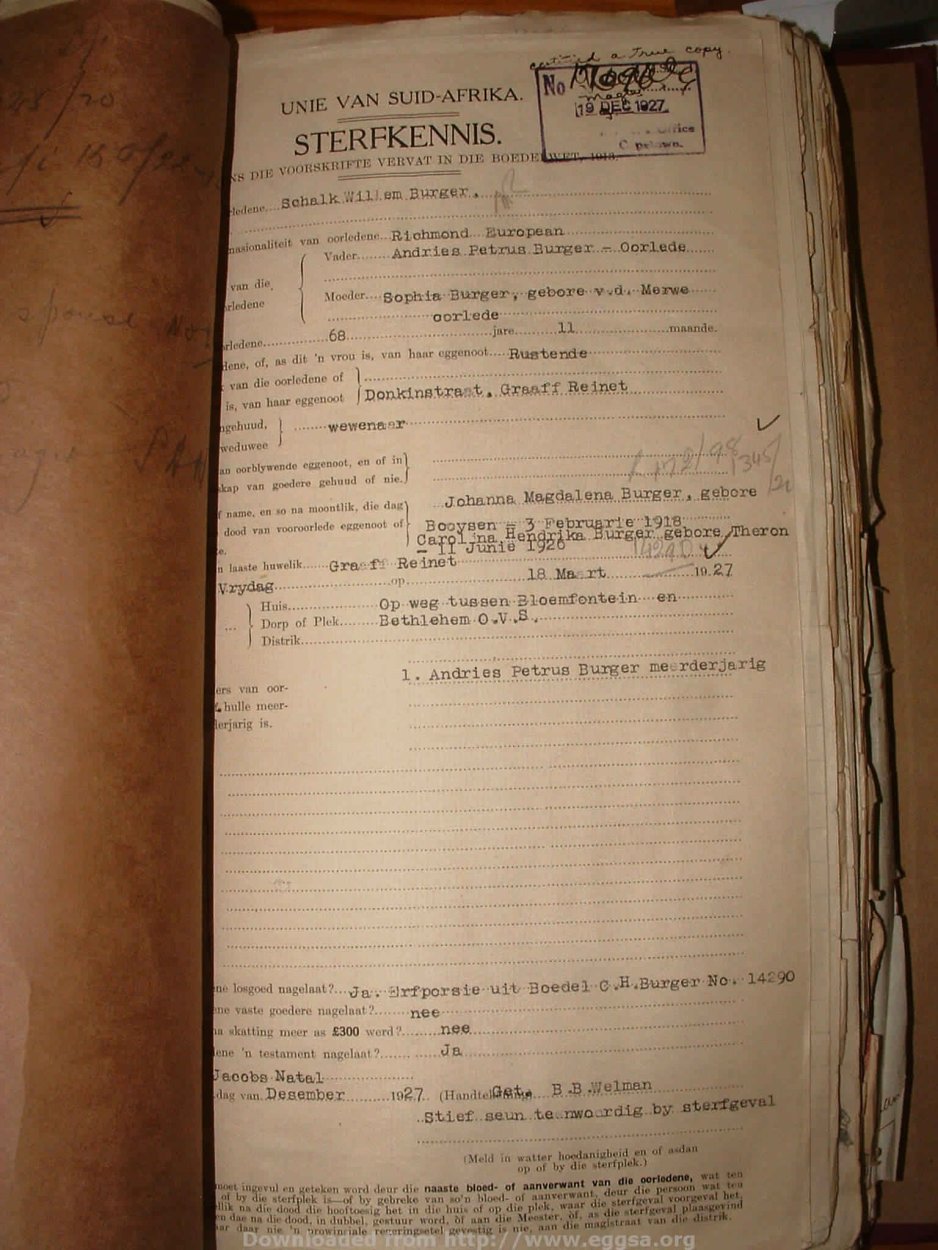 certified a true copy.
No
19 DEC 1927
UNIE VAN SUID-AFRIKA.
STERFKENNIS.
NS DIE VOORSKRIFTE VERVAT IN DIE BOEDELWET, 1913.
rledene....Schalk Willem Burger.
nasionaliteit van oorledene...Richmond European
Vader........Andries Petrus Burger - Oorlede
van die
rledene
Moeder....Sophia Burger, gebore v.d. Merwe
oorlede
rledene...............68...............jare........11...............maande.
dene, of, as dit 'n vrou is, van haar eggenoot....Rustende
van die oorledene of
is, van haar eggenoot
Donkinstraat, Graaff Reinet
ngehuud,
weduwee
wewenaar
an oorblywende eggenoot, en of in
kap van goedere gehuud of nie.
345/
f name, en so na moontlik, die dag
dood van vooroorlede eggenoot of
e.
Johanna Magdalena Burger, gebore
Booysen = 3 Februarie 1918
Carolina Hendrika Burger gebore Theron
- 11 Junie 1926
14290
n laaste huwelik....Graaff Reinet
Vrydag..............op..............18 Maart..............1927
Huis..............Op weg tussen Bloemfontein en
Dorp of Plek........Bethlehem O.V.S.
Distrik
1. Andries Petrus Burger meerderjarig
ers van oor-
hulle meer-
lerjarig is.
ne losgoed nagelaat?...Ja. Erfporsie uit Boedel C.H.Burger No. 14290
ene vaste goedere nagelaat?........nee
na skatting meer as £300 werd?........nee
lene 'n testament nagelaat?........Ja
Jacobs Natal
dag van Desember........1927 (Handtekening Get. B.B.Welman
Stief seun teenwoordig by sterfgeval
(Meld in watter hoedanigheid en of asdan
op of by die sterfplek.)
moet ingevul en geteken word deur die naaste bloed- of aanverwant van die oorledene, wat ten
of by die sterfplek is—of by gebreke van so'n bloed- of aanverwant, deur die persoon wat ten
llik na die dood die hooftoesig het in die huis of op die plek, waar die sterfgeval voorgeval het,
en dae na die dood, in dubbel, gestuur word, òf aan die Meester, òf, as die sterfgeval plaasgevind
ar daar nie 'n provinsiale regeringsetel gevestig is nie, aan die magistraat van die distrik.
Downloaded from http://www.eggsa.org